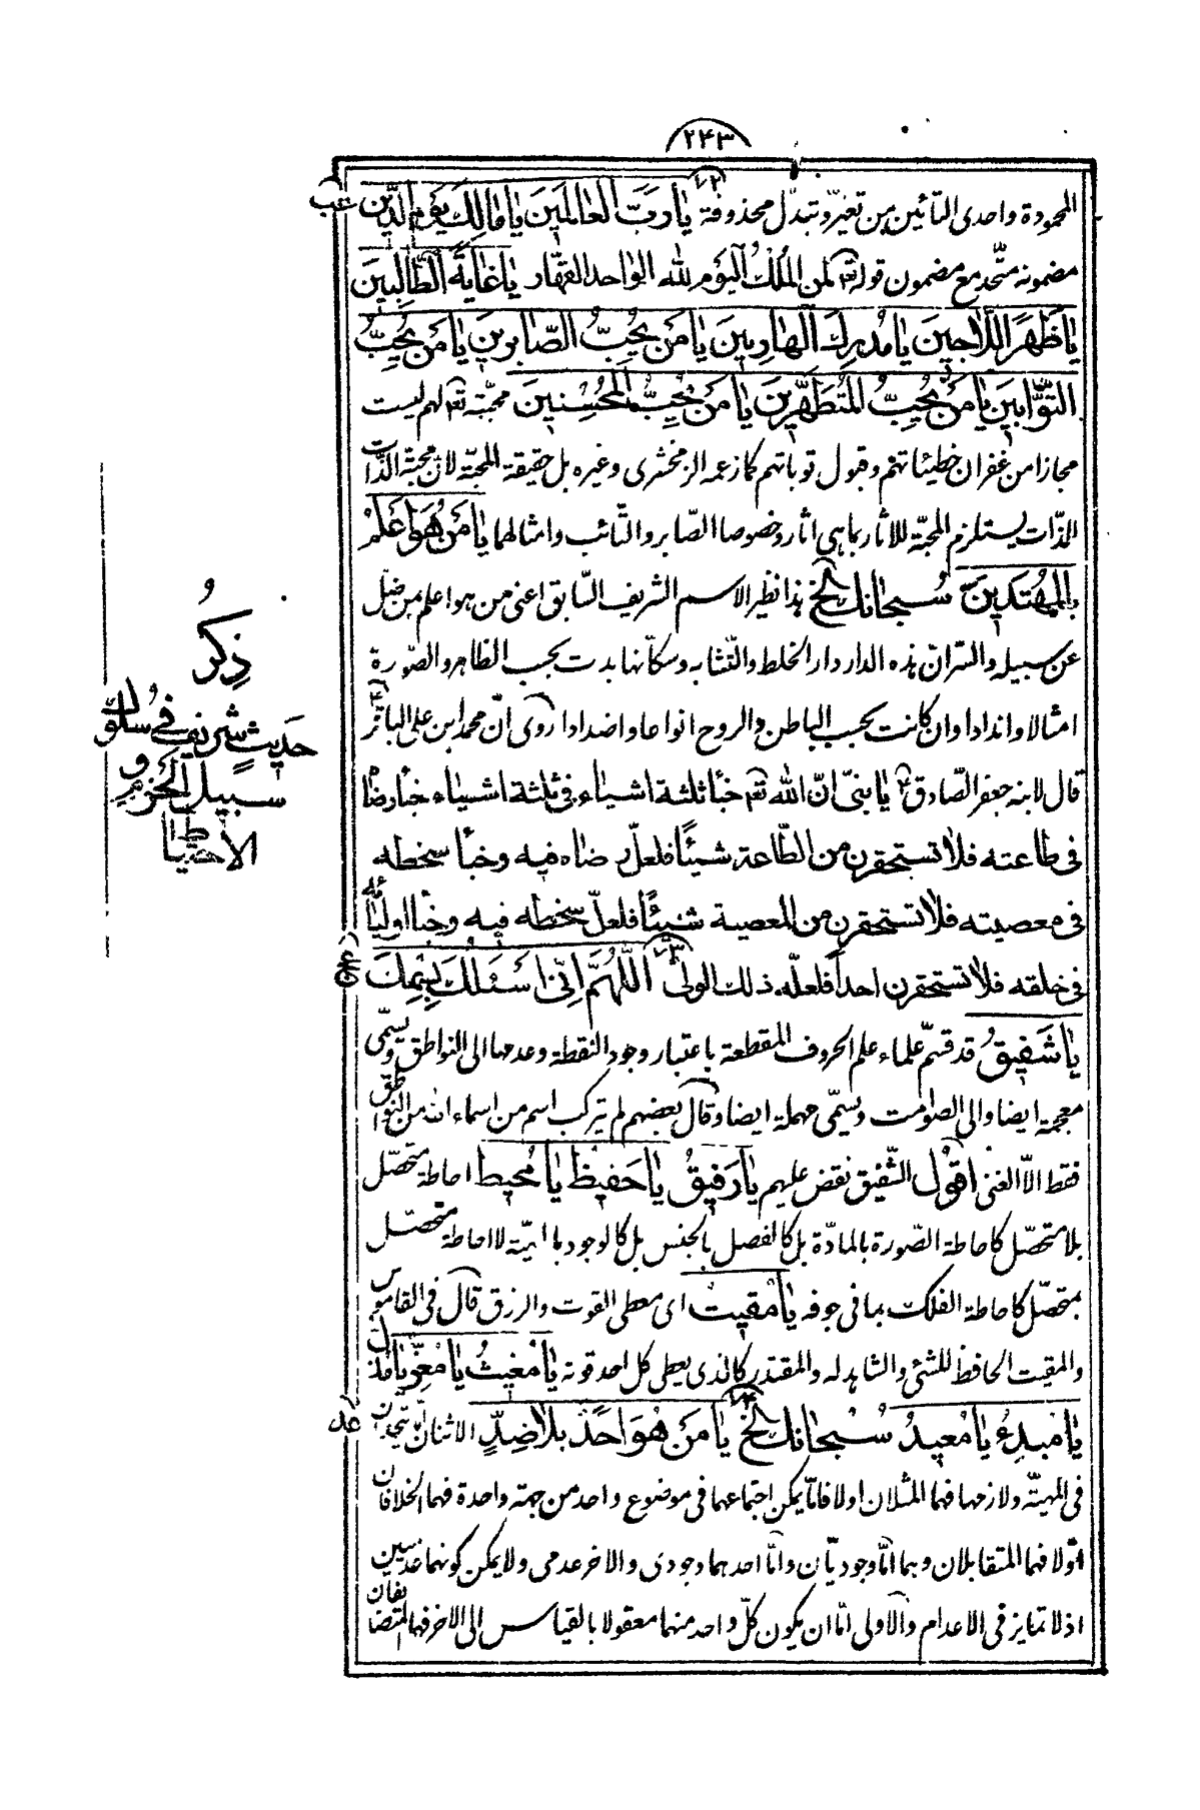 ۲۴۳
المحمودة واحدى التائين من تغيّر وتبدّل محذوفة يا رَبَّ العالَمينَ يا مالِكَ يَوْمِ الدّينِ
مضمونه متّحد مع مضمون قوله تعم لمن المُلْكُ اليَوْم لله الواحد القهّار يا غايَةَ الطّالِبينَ
يا ظَهْرَ اللّاجينَ يا مُدْرِكَ الهارِبينَ يا مَن يُحِبُّ الصّابِرينَ يا مَن يُحِبُّ
التَّوّابينَ يا مَن يُحِبُّ المُتَطَهِّرينَ يا مَن يُحِبُّ المُحْسِنينَ محبّته تعم لهم ليست
مجازا من غفران خطيئاتهم وقبول توباتهم كما زعمه الزمخشرى وغيره بل حقيقة المحبّة لانّ محبّة الذّات
الذّات يستلزم المحبّة للاثار بما هى اثار وخصوصا الصّابر والتّائب وامثالهما يا مَن هُوَ اَعْلَمُ
بِالمُهْتَدينَ سُبحانك الخ هذا نظير الاسم الشريف السّابق اعنى من هو اعلم بمن ضلّ
عن سبيله والسّر انّ هذه الدار دار الخلط والتّشابه وسكّانها بدت بحسب الظاهر والصّورة
امثالا واندادا وان كانت بحسب الباطن والروح انواعا واضدادا روى انّ محمد ابن على الباقر ع
قال لابنه جعفر الصّادق ع يا بنىّ انّ الله تعم خبأ ثلثة اشياء فى ثلثة اشياء خبأ رضاه
فى طاعته فلا تستحقرن من الطّاعة شيئًا فلعلّ رضاه فيه وخبأ سخطه
فى معصيته فلا تستحقرن من المعصية شيئًا فلعلّ سخطه فيه وخبأ اولياءه
فى خلقه فلا تستحقرن احدا فلعلّه ذلك الولىّ اَللّهُمَّ اِنّى اَسْئَلُكَ بِاسْمِكَ
يا شَفيقُ قد قسّم علماء علم الحروف المقطعة باعتبار وجود النقطة وعدمها الى النواطق ويسمّى
معجمة ايضا والى الصوامت ويسمّى مهملة ايضا وقال بعضهم لم يتركب اسم من اسماء الله من النواطق
فقط الّا الغنى اقول الشّفيق نقض عليهم يا رَفيقُ يا حَفيظُ يا مُحيط احاطة متحصّل
بلا متحصّل كاحاطة الصّورة بالمادّة بل كالفصل بالجنس بل كالوجود بالمهيّة لا احاطة متحصّل
بمتحصّل كاحاطة الفلك بما فى جوفه يا مُقيتُ اى معطى القوت والرزق قال فى القاموس
والمقيت الحافظ للشئ والشاهد له والمقتدر كالذى يعطى كل احد قوته يا مُغيثُ يا مُعِزُّ يا مُذِلُّ
يا مُبدِئُ يا مُعيدُ سُبْحانك الخ يا مَن هُوَ اَحَدٌ بلا ضِدٍّ الاثنان ان تّحدان
فى المهيّة ولازمها فهما المثلان اولا فامّا يمكن اجتماعهما فى موضوع واحد من جهة واحدة فهما الخلافان
اولا فهما المتقابلان وهما امّا وجوديّان وامّا احدهما وجودى والاخر عدمى ولا يمكن كونهما عدميين
اذ لا تمايز فى الاعدام والاولى امّا ان يكون كلّ واحد منهما معقولا بالقياس الى الاخر فهما المتضايفان
عب
عج
عد
ذِكرُ
حديثٍ شريفٍ فى سُلوكِ
سبيل الحزم و
الاحتياط